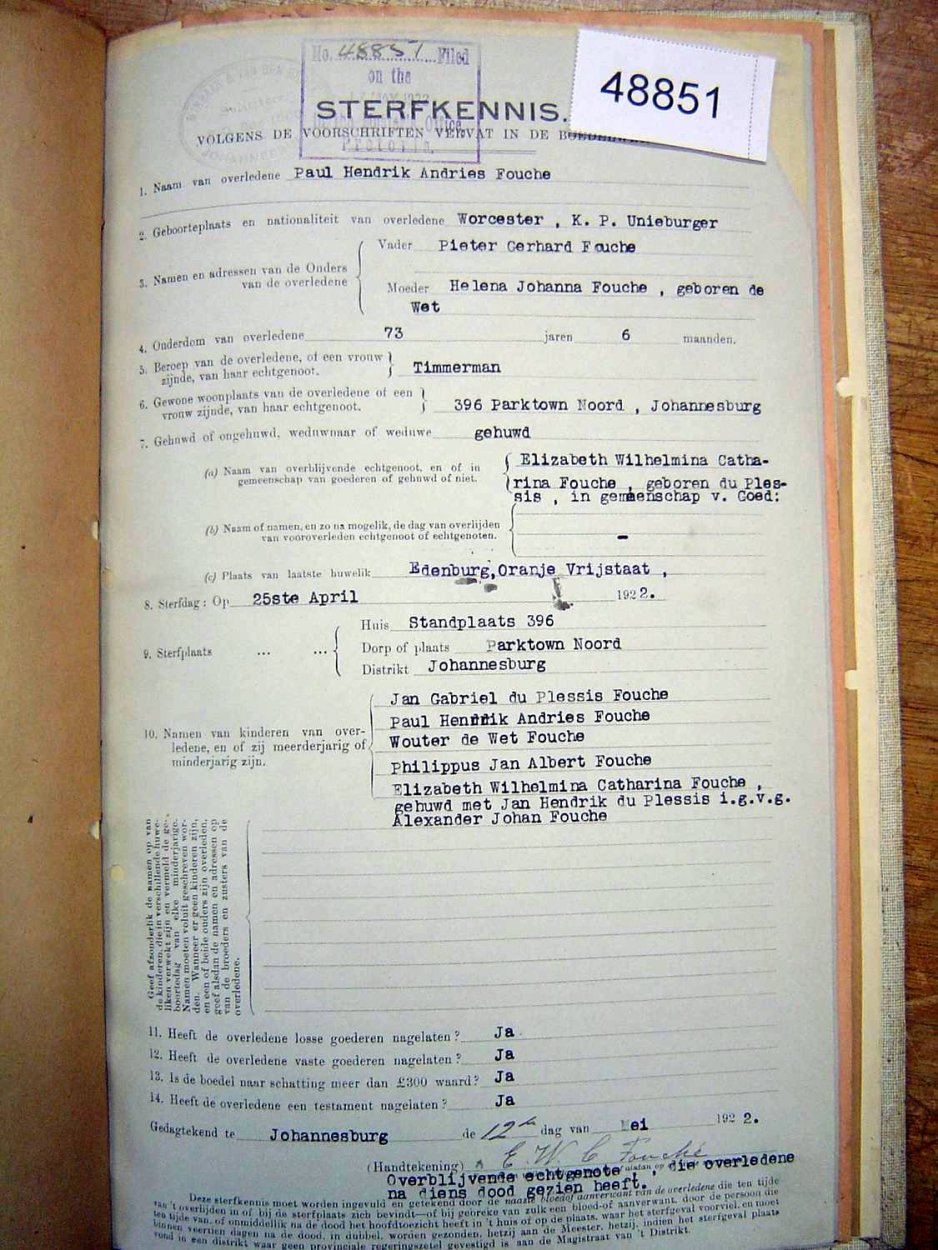 No. 48851 Filed
on the
Office
Pretoria.
48851
STERFKENNIS.
VOLGENS DE VOORSCHRIFTEN VERVAT IN DE
1. Naam van overledene Paul Hendrik Andries Fouche
2. Geboorteplaats en nationaliteit van overledene Worcester , K. P. Unieburger
3. Namen en adressen van de Onders van de overledene
Vader Pieter Gerhard Fouche
Moeder Helena Johanna Fouche , geboren de
Wet
4. Onderdom van overledene 73 jaren 6 maanden.
5. Beroep van de overledene, of een vrouw
zijnde, van haar echtgenoot. Timmerman
6. Gewone woonplaats van de overledene of een
vrouw zijnde, van haar echtgenoot. 396 Parktown Noord , Johannesburg
7. Gehuwd of ongehuwd, weduwnaar of weduwe gehuwd
(a) Naam van overblijvende echtgenoot, en of in
gemeenschap van goederen of gehuwd of niet.
Elizabeth Wilhelmina Catha-
rina Fouche , geboren du Ples-
sis , in gemeenschap v. Goed:
(b) Naam of namen, en zo na mogelik, de dag van overlijden
van vooroverleden echtgenoot of echtgenoten. -
(c) Plaats van laatste huwelik Edenburg,Oranje Vrijstaat ,
8. Sterfdag: Op 25ste April 1922.
9. Sterfplaats ... ...
Huis Standplaats 396
Dorp of plaats Parktown Noord
Distrikt Johannesburg
10. Namen van kinderen van over-
ledene, en of zij meerderjarig of
minderjarig zijn.
Jan Gabriel du Plessis Fouche
Paul Hendrik Andries Fouche
Wouter de Wet Fouche
Philippus Jan Albert Fouche
Elizabeth Wilhelmina Catharina Fouche ,
gehuwd met Jan Hendrik du Plessis i.g.v.g.
Alexander Johan Fouche
Geef afzonderlik de namen op van
de kinderen, die in verschillende huwe-
liken verwekt zijn en vermeld de ge-
boortedag van elke minderjarige.
Namen moeten voluit geschreven wor-
den. Wanneer er geen kinderen zijn,
en een of beide ouders zijn overleden,
geef alsdan de namen en adressen op
van de broeders en zusters van de
overledene.
11. Heeft de overledene losse goederen nagelaten? Ja
12. Heeft de overledene vaste goederen nagelaten? Ja
13. Is de boedel naar schatting meer dan £300 waard? Ja
14. Heeft de overledene een testament nagelaten? Ja
Gedagtekend te Johannesburg de 12de dag van Mei 1922.
(Handtekening) E W C Fouché
Overblijvende echtgenote , die overledene
na diens dood gezien heeft.
Deze sterfkennis moet worden ingevuld en getekend door de naaste bloedof aanverwant van de overledene die ten tijde
van 't overlijden in of bij de sterfplaats zich bevindt—of bij gebreke van zulk een blood-of aanverwant, door de persoon die
ten tijde van, of onmiddellik na de dood het hoofdtoezicht heeft in 't huis of op de plaats, waar het sterfgeval voorviel, en moet
binnen veertien dagen na de dood, in dubbel, worden gezonden, hetzij aan de Meester, hetzij, indien het sterfgeval plaats
vond in een distrikt waar geen provinciale regeringszetel gevestigd is aan de Magistraat van 't Distrikt.